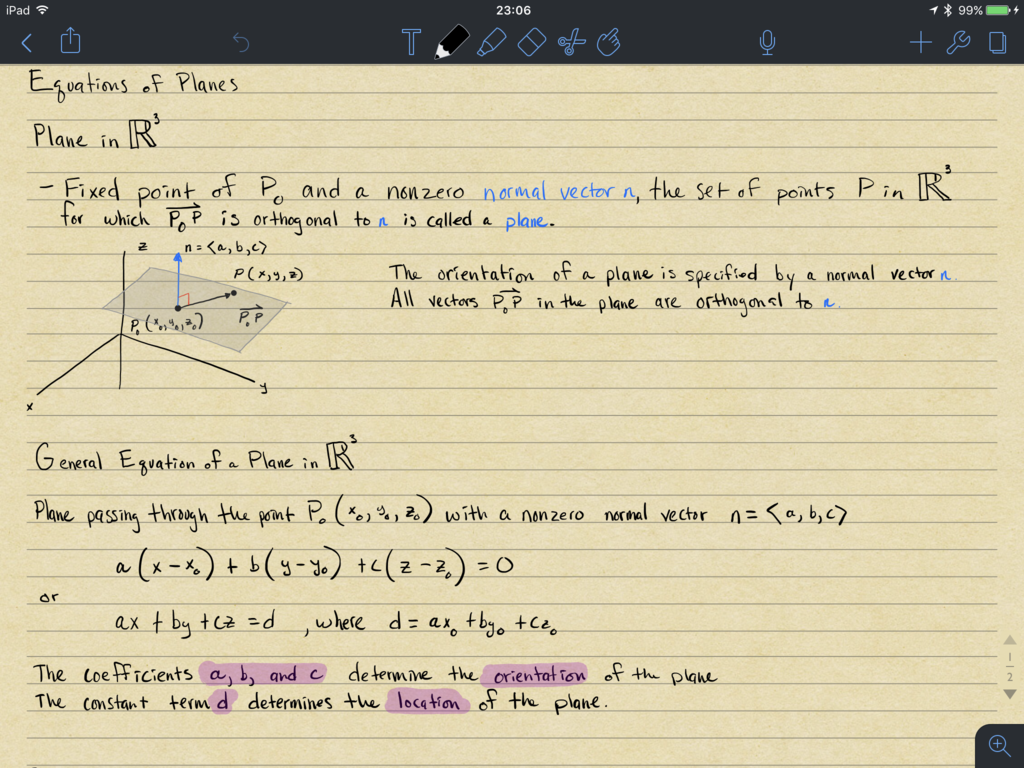 iPad 23:06 99%
T
Equations of Planes
Plane in ℝ³
- Fixed point of P₀ and a nonzero normal vector n, the set of points P in ℝ³
for which P₀P is orthogonal to n is called a plane.
z n = <a, b, c>
P(x, y, z)
P₀P
P₀(x₀, y₀, z₀)
y
x
The orientation of a plane is specified by a normal vector n.
All vectors P₀P in the plane are orthogonal to n.
General Equation of a Plane in ℝ³
Plane passing through the point P₀(x₀, y₀, z₀) with a nonzero normal vector n = <a, b, c>
a(x-x₀) + b(y-y₀) + c(z-z₀) = 0
or
ax + by + cz = d , where d = ax₀ + by₀ + cz₀
The coefficients a, b, and c determine the orientation of the plane
The constant term d determines the location of the plane.
1
2